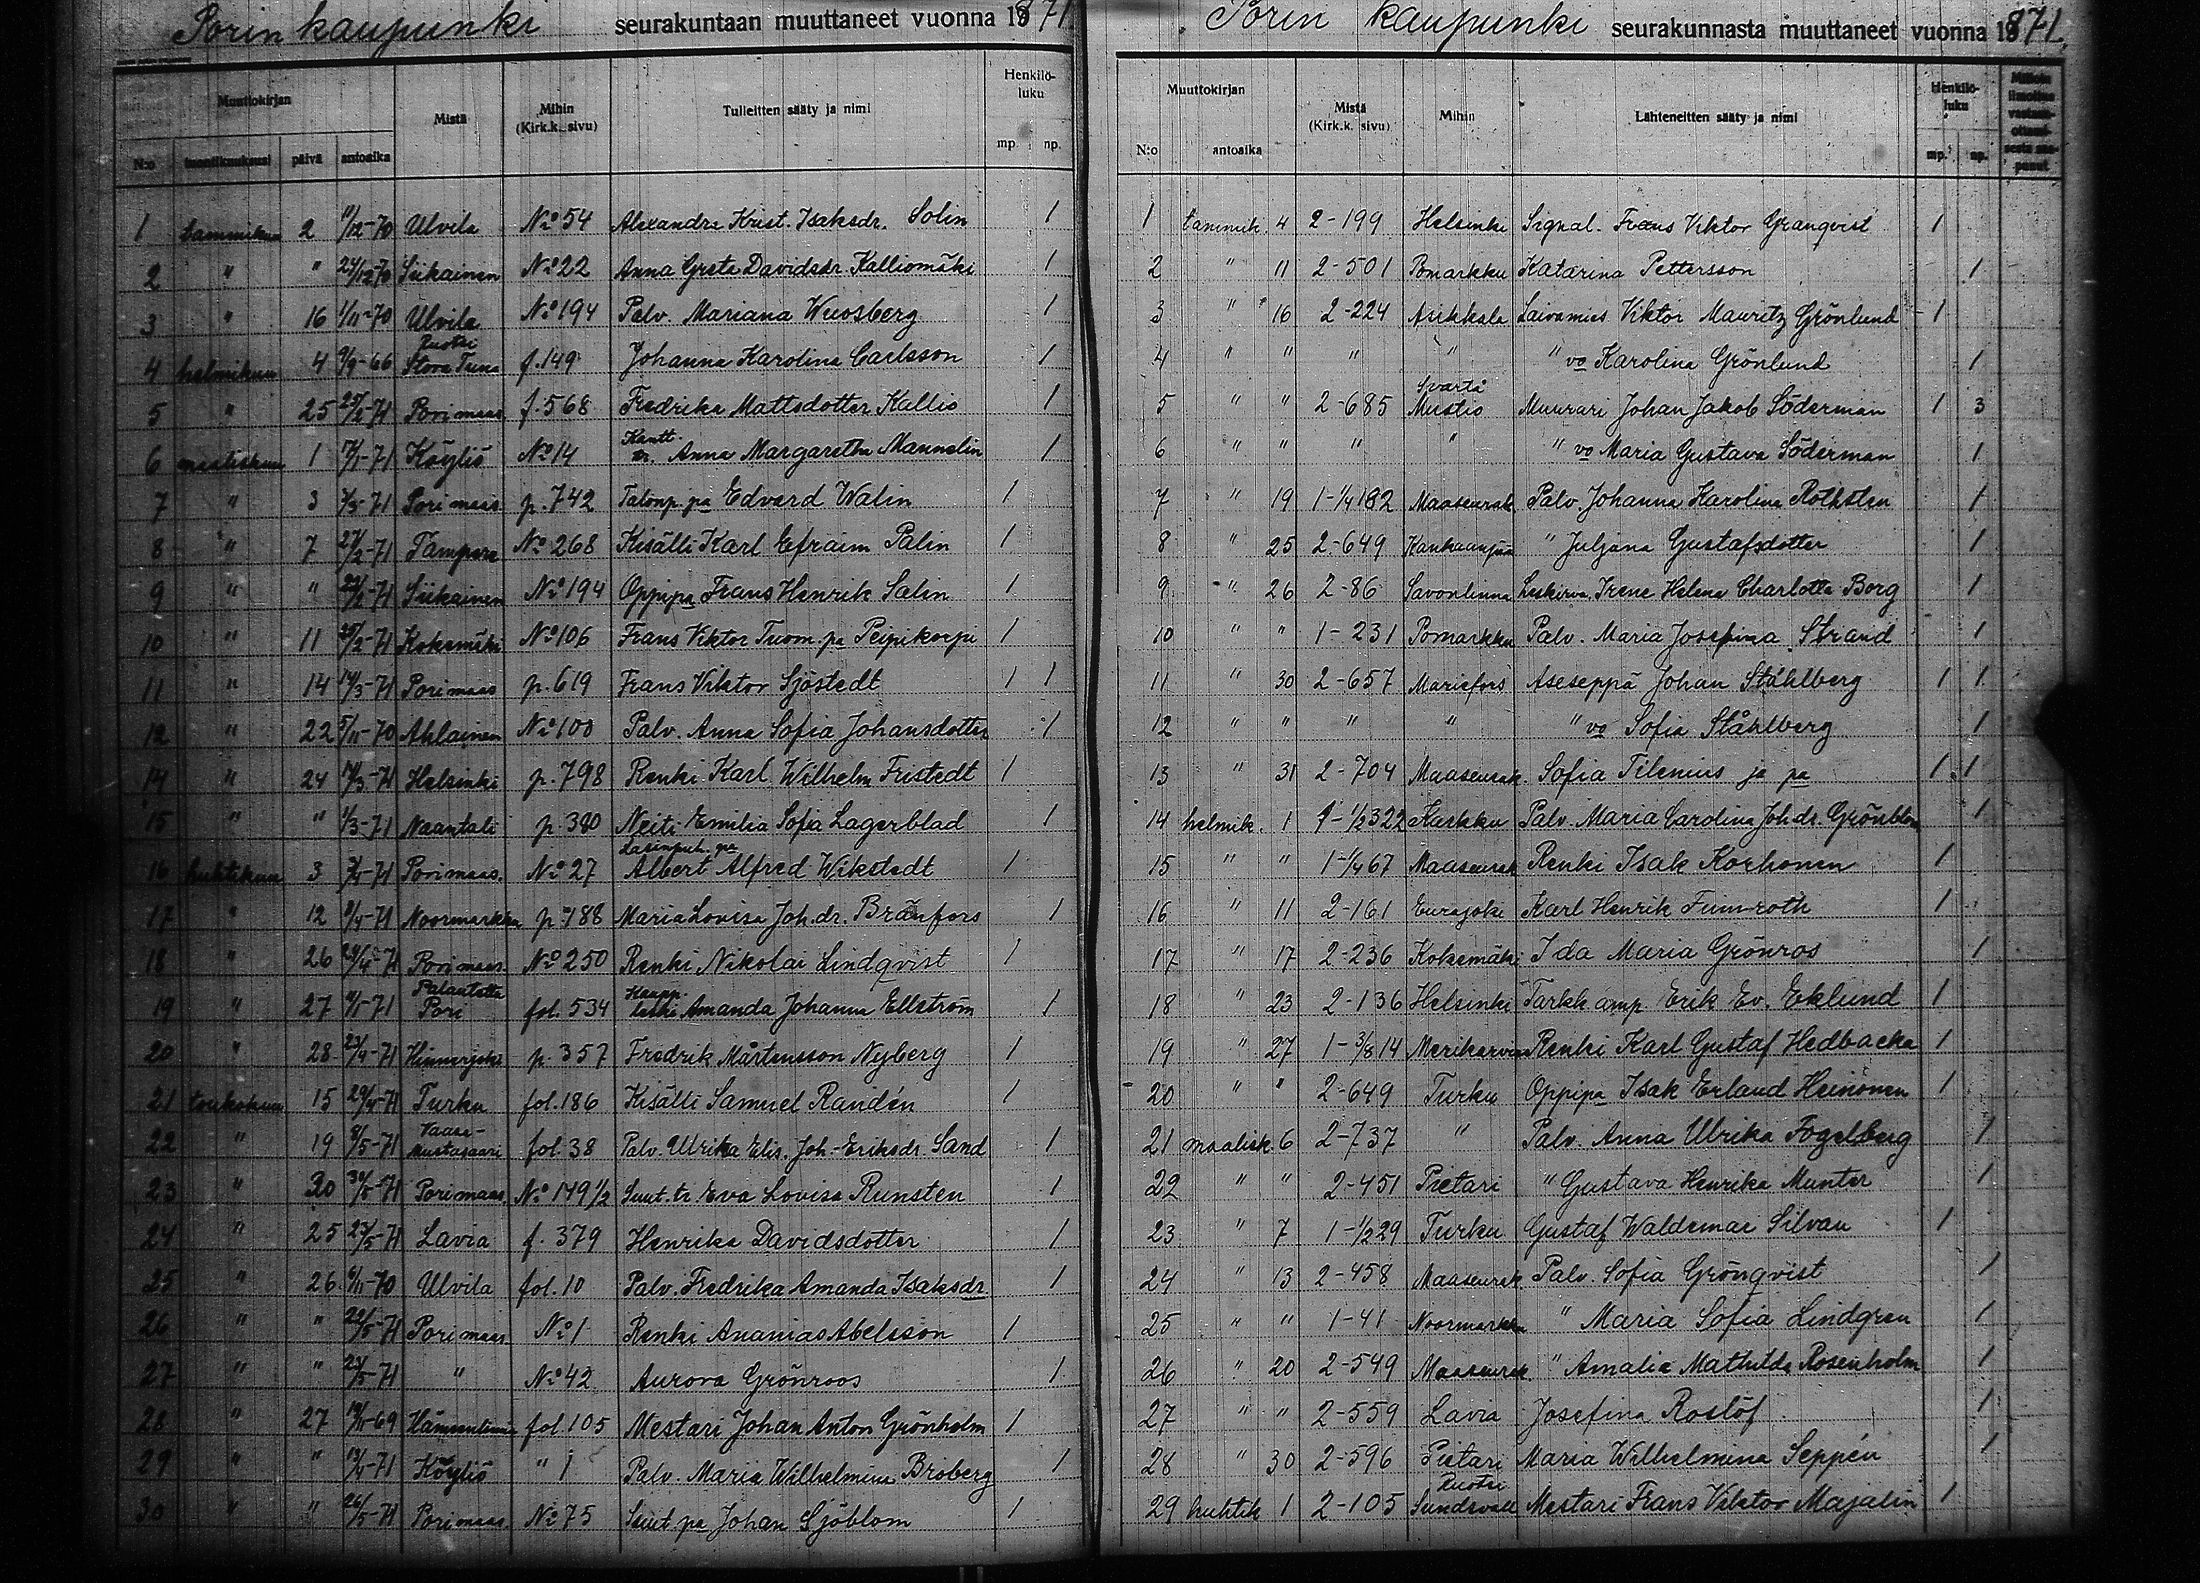 Porin kaupunki seurakuntaan muuttaneet vuonna 1871
Muuttokirjan
Mistä
Mihin (Kirk.k. sivu)
Tulleitten sääty ja nimi
Henkilö-luku
N:o päivä antoaika mp. np.
1 tammikuu 2 /12-70 Ulvila No 54 Alexandra Krist. Isaksdr. Solin 1
2 " " 24/12 70 Siikainen No 22 Anna Greta Davidsdr. Kalliomäki 1
3 " 16 1/11-70 Ulvila No 194 Palv. Mariana Wuosberg 1
4 helmikuu 4 9/9-66 Ruotsi Stora Tuna f. 149 Johanna Karolina Carlsson 1
5 " 25 25/2-71 Pori maas. f. 568 Fredrika Mattsdotter Kallio 1
6 maaliskuu 1 /1-71 Köyliö No 14 Kantt. Anna Margaretha Mannelin 1
7 " 3 3/3-71 Pori maas p. 742 Talonp. pa Edvard Walin 1
8 " 7 27/2-71 Tampere No 268 Kisälli Karl Efraim Palin 1
9 " " 22/2-71 Siikainen No 194 Oppipa Frans Henrik Salin 1
10 " 11 25/2-71 Kokemäki No 106 Frans Viktor Tuom. pa Peipikorpi 1
11 " 14 14/3-71 Pori maas p. 619 Frans Viktor Sjöstedt 1 1
12 " 22 5/11-70 Ahlainen No 100 Palv. Anna Sofia Johansdotter 1
14 " 24 /3-71 Helsinki p. 798 Renki Karl Wilhelm Fristedt 1
15 " " 1/3-71 Naantali p. 380 Neiti Emilia Sofia Lagerblad 1
16 huhtikuu 3 3/4-71 Pori maas. No 27 Lasinpuh. pa Albert Alfred Wikstedt 1
17 " 12 9/4-71 Noormarkku p. 188 Maria Lovisa Joh.dr. Bränfors 1
18 " 26 24/4-71 Pori maas. No 250 Renki Nikolai Lindqvist 1
19 " 27 /1-71 Palautettu Pori fol. 534 Kaupp. leski Amanda Johanna Ellström 1
20 " 28 23/4-71 Hinnerjoki p. 357 Fredrik Mårtensson Nyberg 1
21 toukokuu 15 29/4-71 Turku fol. 186 Kisälli Samuel Randén 1
22 " 19 8/5-71 Vaasa-Mustasaari fol. 38 Palv. Ulrika Elis. Joh.-Eriksdr. Sand 1
23 " 30/5-71 Pori maas. No 149 1/2 Suut. tr. Eva Lovisa Runsten 1
24 " 25 23/5-71 Lavia f. 379 Henrika Davidsdotter 1
25 " 26 6/11-70 Ulvila fol. 10 Palv. Fredrika Amanda Isaksdr 1
26 " " 22/5-71 Pori maas No 1 Renki Ananias Abelsson 1
27 " " 23/5-71 " No 42 Aurora Grönroos 1
28 " 27 19/11-69 fol. 105 Mestari Johan Anton Grönholm 1
29 " " 13/4-71 Köyliö " 1 Palv. Maria Wilhelmina Broberg 1
30 " " 26/5-71 Pori maas. No 75 Suut pa Johan Sjöblom 1
Porin kaupunki seurakunnasta muuttaneet vuonna 1871.
Muuttokirjan
Mistä (Kirk.k. sivu)
Mihin
Lähteneitten sääty ja nimi
Henkilö-luku
N:o antoaika mp. np.
1 tammik. 4 2-199 Helsinki Signal. Frans Viktor Granqvist 1
2 " 11 2-501 Pomarkku Katarina Pettersson 1
3 " 16 2-224 Asikkala Laivamies Viktor Mauritz Grönlund 1
4 " " " " " vo Karolina Grönlund 1
5 " " 2-685 Svartå Mustio Muurari Johan Jakob Söderman 1 3
6 " " " " " vo Maria Gustava Söderman 1
7 " 19 1-1/4 182 Maaseurak. Palv. Johanna Karolina Rothsten 1
8 " 25 2-649 Kankaanpää " Juljana Gustafsdotter 1
9 " 26 2-86 Savonlinna Leskirva. Irene Helena Charlotta Borg 1
10 " " 1-231 Pomarkku Palv. Maria Josefina Strand 1
11 " 30 2-657 Mariefors Aseseppä Johan Ståhlberg 1 1
12 " " " " " vo Sofia Ståhlberg 1
13 " 31 2-704 Maaseurak. Sofia Tilenius ja pa 1 1
14 helmik. 1 1-1/2 322 Karkku Palv. Maria Carolina Joh.dr. Grönblom 1
15 " " 1-1/4 67 Maaseurak Renki Isak Korhonen 1
16 " 11 2-161 Eurajoki Karl Henrik Fumroth 1
17 " 17 2-236 Kokemäki Ida Maria Grönros 1
18 " 23 2-136 Helsinki Tarkk amp. Erik Ev. Eklund 1
19 " 27 1-3/8 14 Merikarvia Renki Karl Gustaf Hedbacka 1
20 " " 2-649 Turku Oppipa Isak Erland Heinonen 1
21 maalisk. 6 2-737 " Palv. Anna Ulrika Fogelberg 1
22 " " 2-451 Pietari " Gustava Henrika Munter 1
23 " 7 1-1/2 29 Turku Gustaf Waldemar Silvan 1
24 " 13 2-458 Maaseurak Palv. Sofia Grönqvist 1
25 " " 1-41 Noormarkku " Maria Sofia Lindgren 1
26 " 20 2-549 Maaseurak. " Amalia Mathilda Rosenholm 1
27 " " 2-559 Lavia Josefina Roslöf 1
28 " 30 2-596 Pietari Maria Wilhelmina Seppén 1
29 huhtik 1 2-105 Ruotsi Sundsvall Mestari Frans Viktor Majalin 1